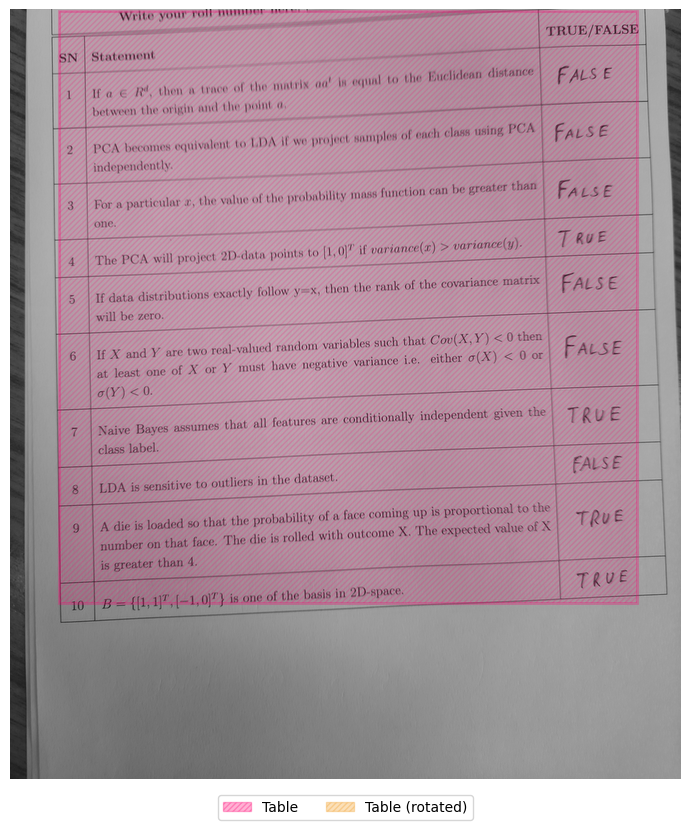 Write your roll number here:
SN Statement TRUE/FALSE
1 If a ∈ R^d, then a trace of the matrix aa^t is equal to the Euclidean distance FALSE
between the origin and the point a.
2 PCA becomes equivalent to LDA if we project samples of each class using PCA FALSE
independently.
3 For a particular x, the value of the probability mass function can be greater than FALSE
one.
4 The PCA will project 2D-data points to [1, 0]^T if variance(x) > variance(y). TRUE
5 If data distributions exactly follow y=x, then the rank of the covariance matrix FALSE
will be zero.
6 If X and Y are two real-valued random variables such that Cov(X, Y) < 0 then FALSE
at least one of X or Y must have negative variance i.e. either σ(X) < 0 or
σ(Y) < 0.
7 Naive Bayes assumes that all features are conditionally independent given the TRUE
class label.
8 LDA is sensitive to outliers in the dataset. FALSE
9 A die is loaded so that the probability of a face coming up is proportional to the TRUE
number on that face. The die is rolled with outcome X. The expected value of X
is greater than 4.
10 B = {[1, 1]^T, [−1, 0]^T} is one of the basis in 2D-space. TRUE
Table Table (rotated)